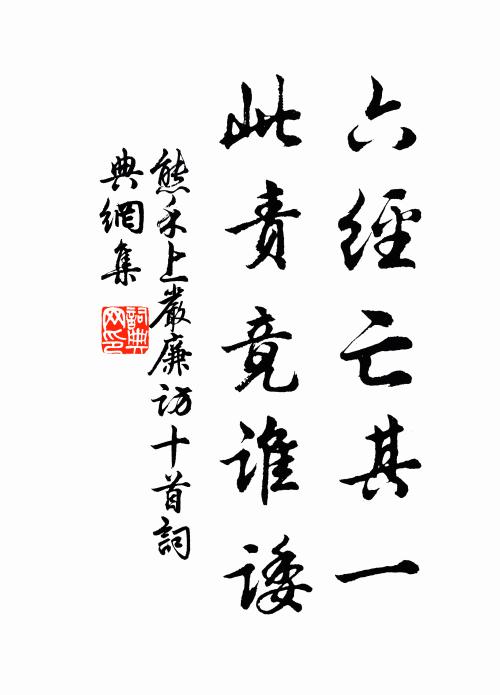 六經亡其一
此責竟誰諉
熊禾上嚴廉訪十首詞
典網集
詞典網印